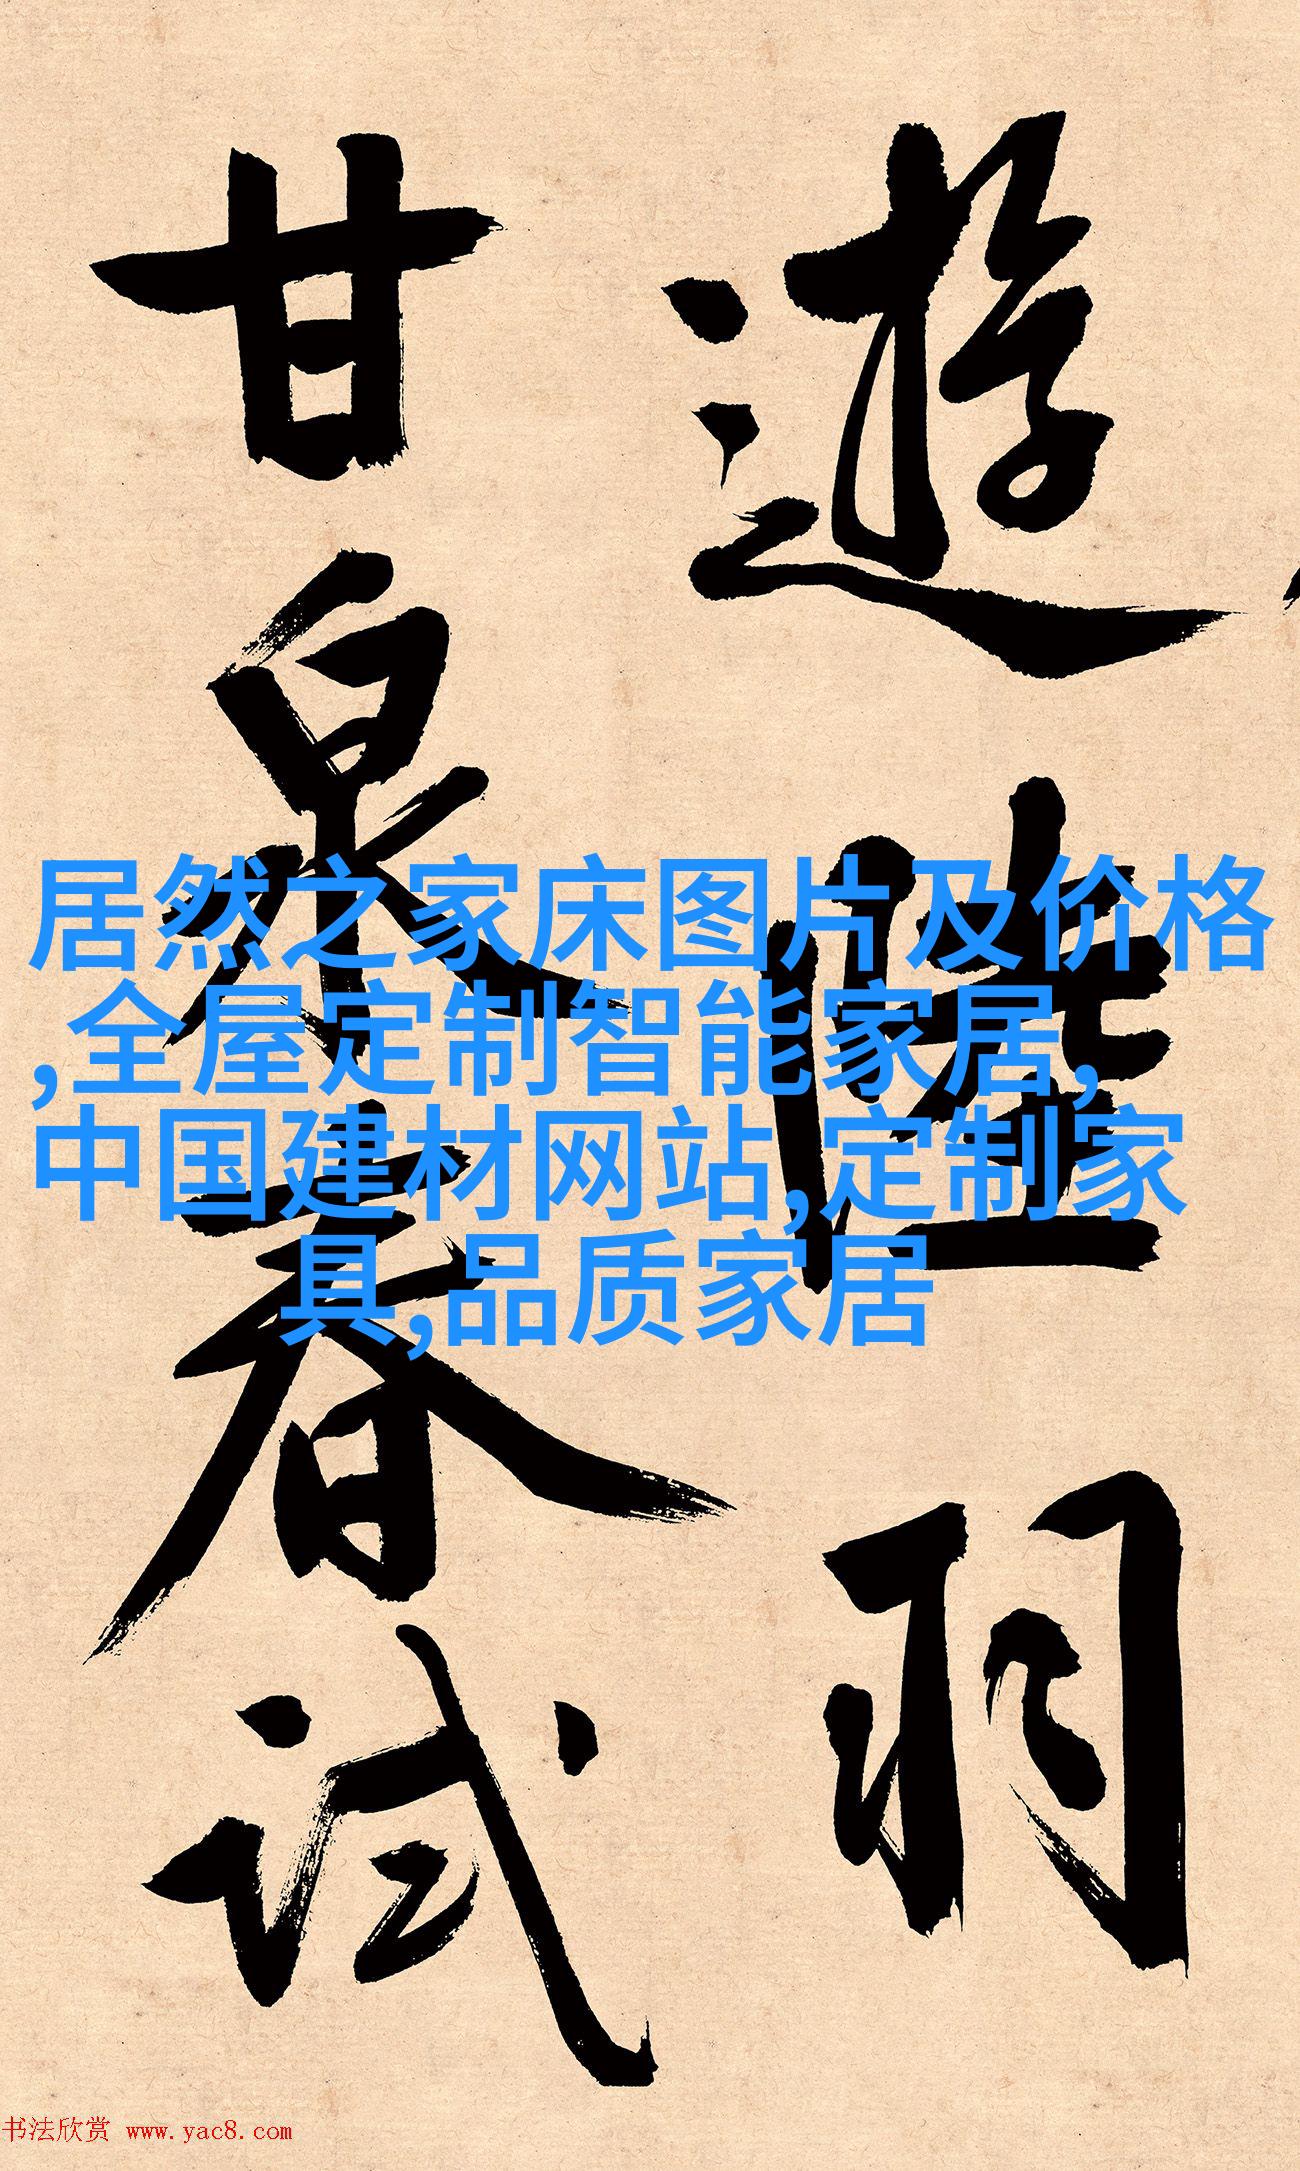 遊陸羽
甘泉春试
居然之家床图片及价格
,全屋定制智能家居,
中国建材网站,定制家
具,品质家居
书法欣赏 www.yac8.com